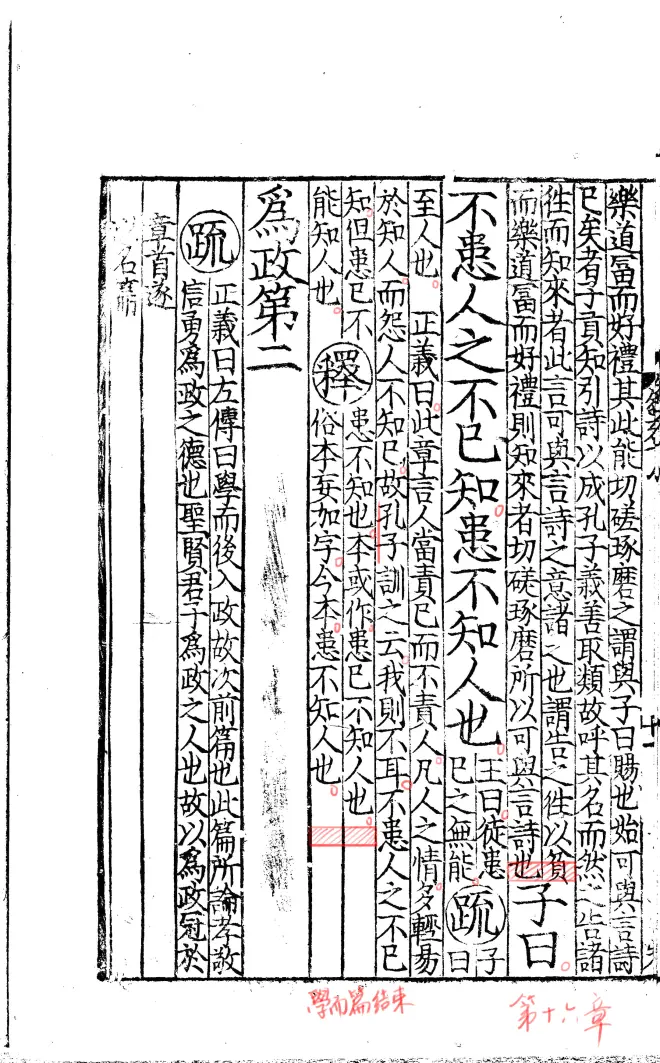 樂道富而好禮其此能切磋琢磨之謂與子曰賜也始可與言詩
已矣者子貢知引詩以成孔子義善取類故呼其名而然之告諸
徃而知來者此言可與言詩之意諸之也謂告之徃以貧
而樂道富而好禮則知來者切磋琢磨所以可與言詩也
子曰。
不患人之不已知。患不知人也。
王曰徒患
已之無能。
疏
子曰
至人也。 正義曰。此章言人當責已而不責人。凡人之情。多輕易
於知人。而怨人不知已。故孔子訓之云。我則不耳。不患人之不已
知。但患已不
能知人也。
釋
患不知也。本或作。患已不知人也。
俗本妄加字。今本。患不知人也。
爲政第二
疏
正義曰左傳曰學而後入政故次前篇也此篇所論孝敬
信勇爲政之德也聖賢君子爲政之人也故以爲政冠於
章首遂
名篇
學而篇結束
第十六章